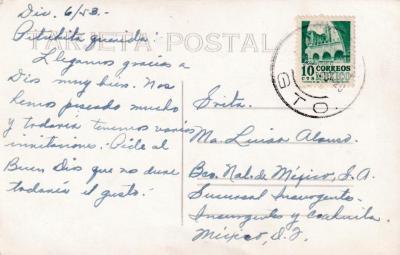 Dic. 6/53.-
TARJETA POSTAL
querida:
Llegamos gracias a
Dios muy bien. Nos
hemos paseado mucho
y todavía tenemos varias
invitaciones. Pide al
Buen Dios que nos dure
todavía el gusto.
10 CORREOS
CTS MEXICO
GTO.
Srita.
Ma. Luisa Alonso.
Bco. Nal. de México, S.A.
Sucursal Insurgentes.
Insurgentes y Coahuila.
México, D.F.